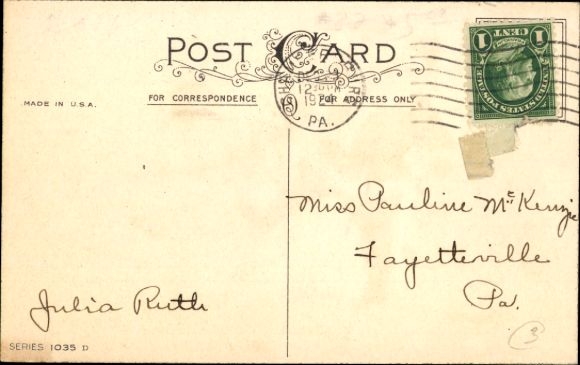 POST CARD
MADE IN U.S.A.
FOR CORRESPONDENCE
FOR ADDRESS ONLY
PA.
1 CENT 1
UNITED STATES POSTAGE
Miss Pauline McKenzie
Fayetteville
Pa.
Julia Ruth
SERIES 1035 D
3